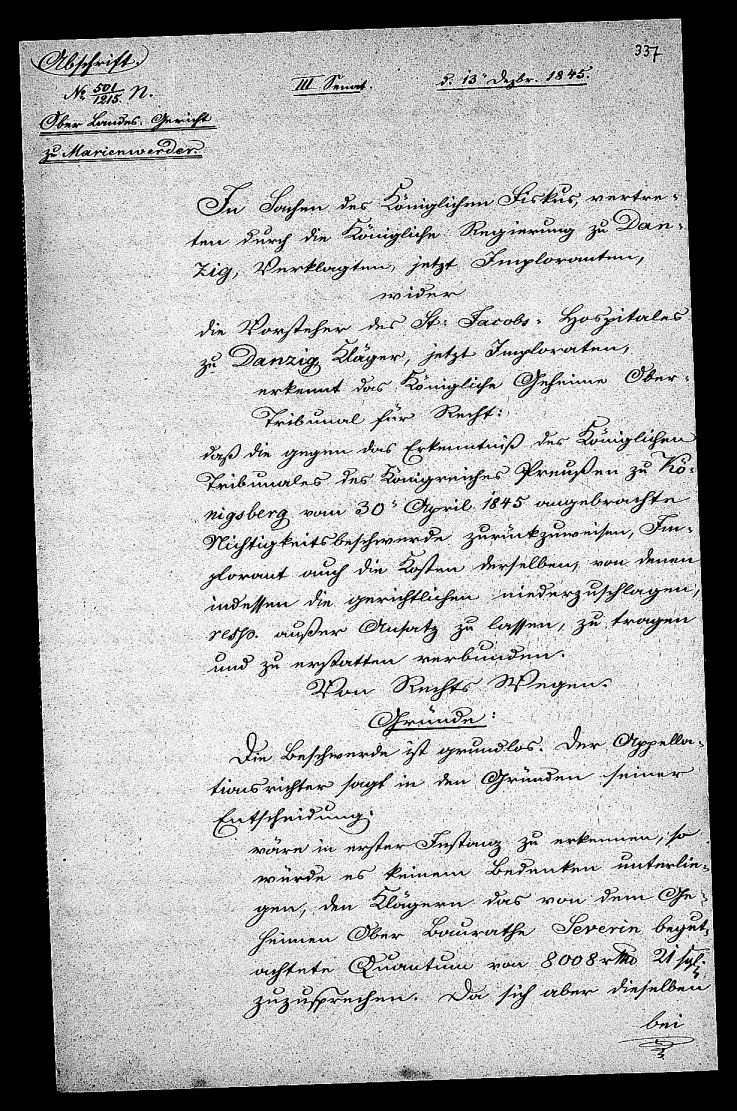 Abschrift.
337
№ 501/1215 N.
III Senat.
d. 13' Dezbr. 1845.
Ober Landes-Gericht
zu Marienwerder.
In Sachen des Königlichen Fiskus, vertre-
ten durch die Königliche Regierung zu Dan-
zig, Verklagten, jetzt Imploranten,
wider
die Vorsteher des St: Jacobs-Hospitales
zu Danzig Kläger, jetzt Imploraten,
erkennt das Königliche Geheime Ober-
Tribunal für Recht:
daß die gegen das Erkenntniß des Königlichen
Tribunales des Königreiches Preußen zu Kö-
nigsberg vom 30' April 1845 angebrachte
Nichtigkeitsbeschwerde zurückzuweisen, Im-
plorant auch die Kosten derselben, von denen
indessen die gerichtlichen niederzuschlagen,
resp. außer Ansatz zu lassen, zu tragen
und zu erstatten verbunden.
Von Rechts Wegen.
Gründe:
Die Beschwerde ist grundlos. Der Appella-
tionsrichter sagt in den Gründen seiner
Entscheidung:
wäre in erster Instanz zu erkennen, so
würde es keinem Bedenken unterlie-
gen, den Klägern das von dem Ge-
heimen Ober Baurathe Severin begut-
achtete Quantum von 8008 rthlr 21 sgl.
zuzusprechen. Da sich aber dieselben
bei